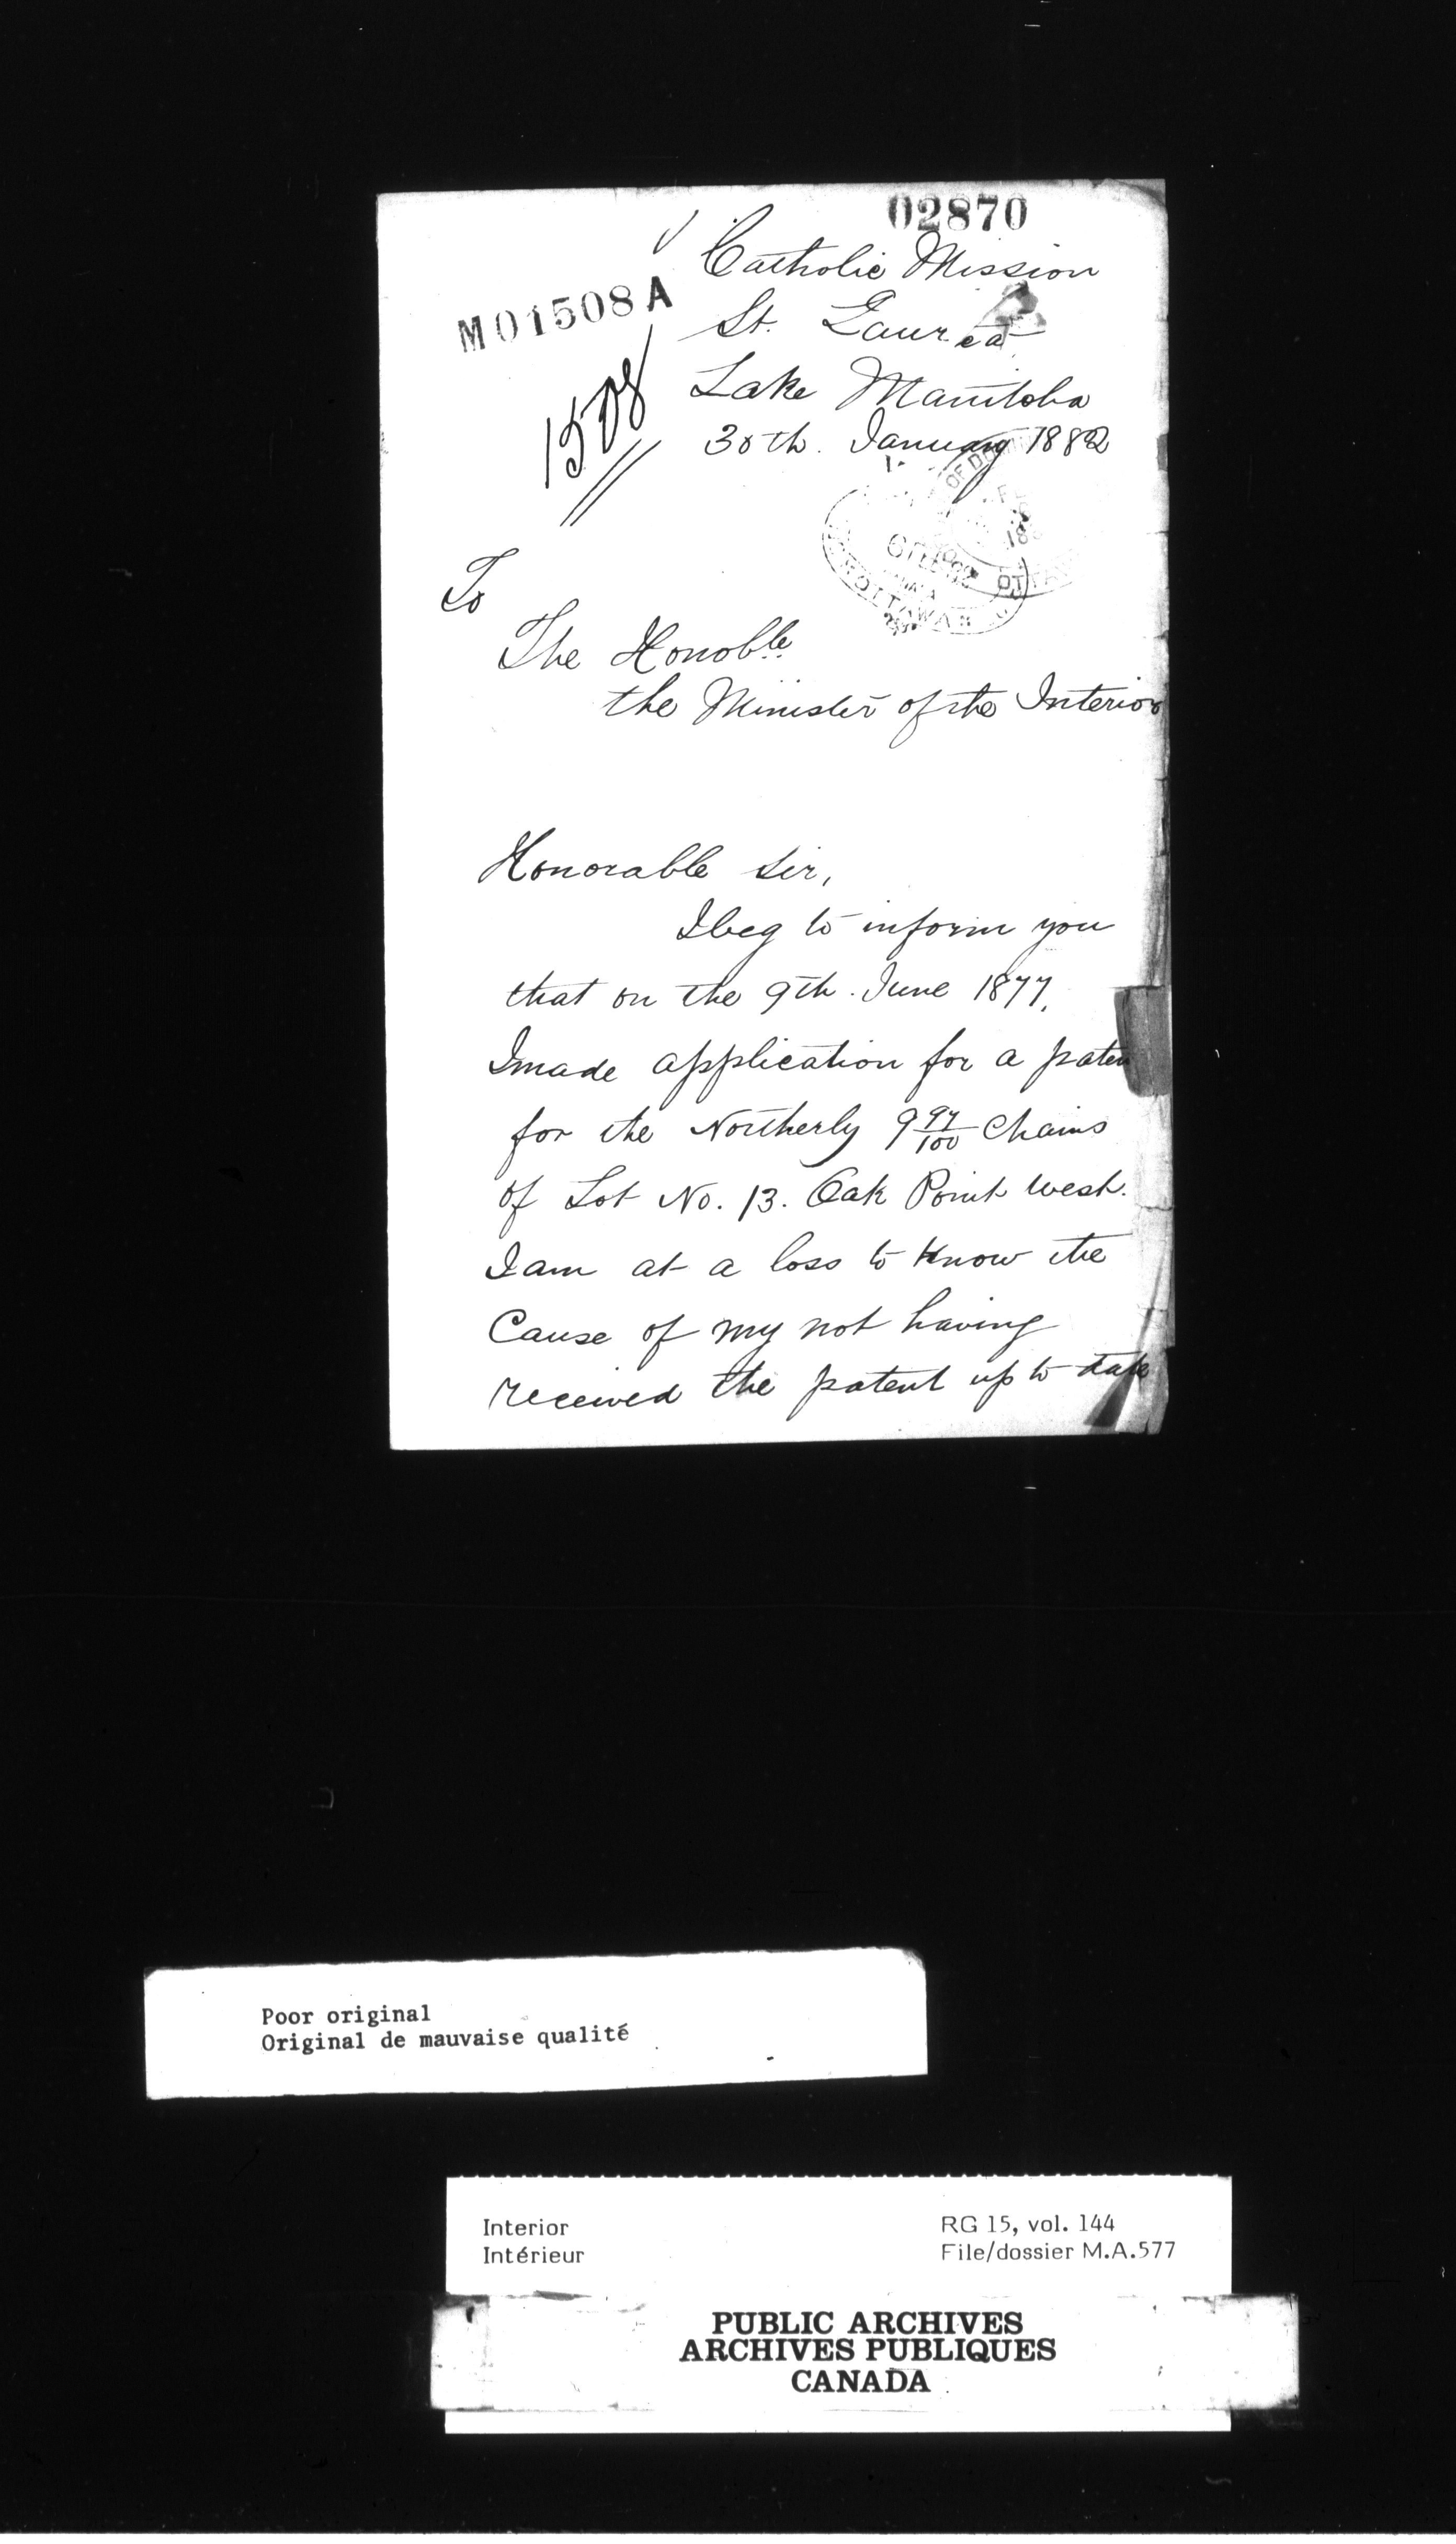 02870
Catholic Mission
M01508A
St. Laurea
1508
Lake Manitoba
30th. January 1882
OTTAWA
To
The Honoble
the Minister of the Interior
Honorable Sir,
I beg to inform you
that on the 9th. June 1877.
I made application for a paten
for the Northerly 9 97/100 Chains
of Lot No. 13. Oak Point West.
I am at a loss to know the
Cause of my not having
received the patent up to date
Poor original
Original de mauvaise qualité
Interior
Intérieur
RG 15, vol. 144
File/dossier M.A.577
PUBLIC ARCHIVES
ARCHIVES PUBLIQUES
CANADA